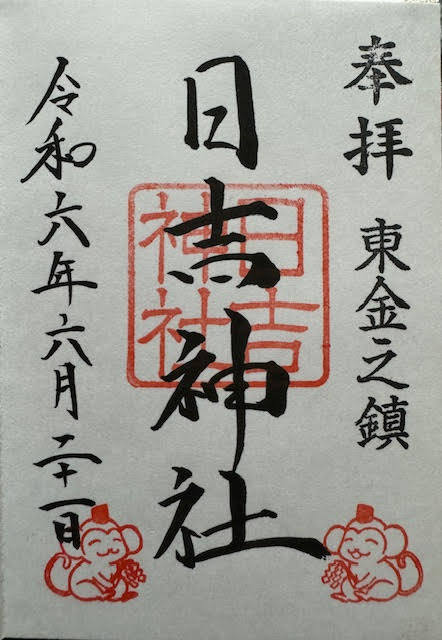 奉拝 東金之鎮
日吉神社
日吉
神社
令和六年六月二十一日